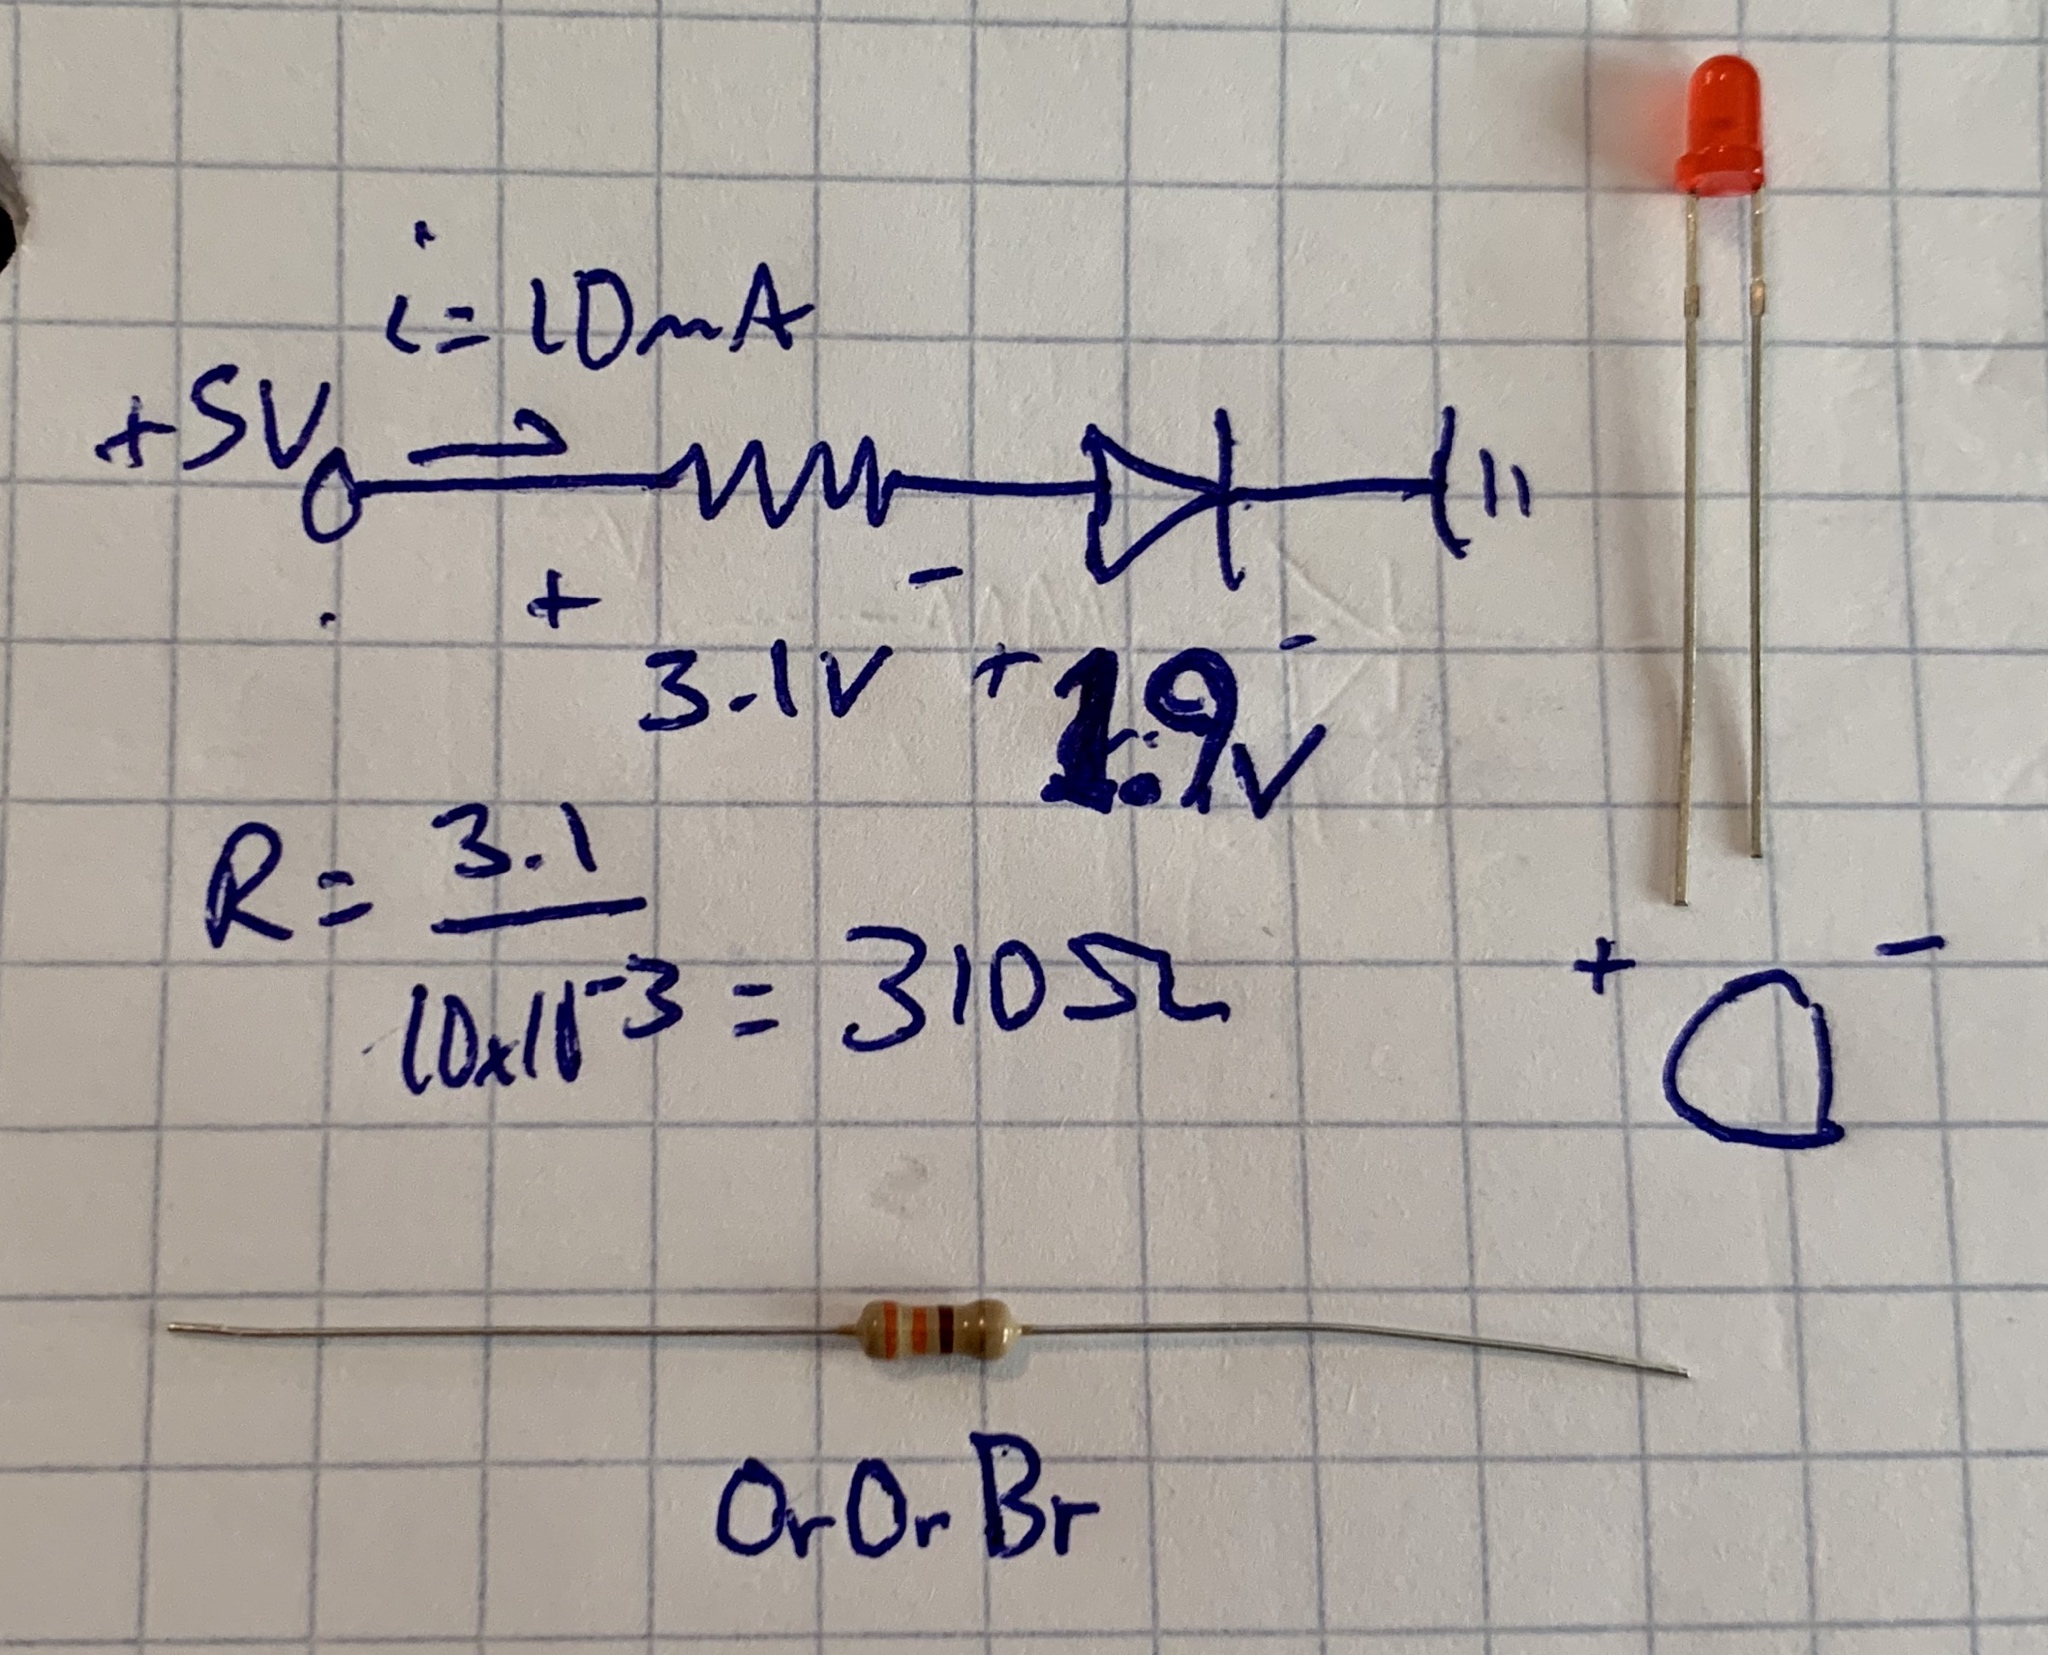 i = 10mA
+5V
+ -
3.1V + 1.9V -
R = 3.1
10x10⁻³ = 310Ω
+ -
Or Or Br